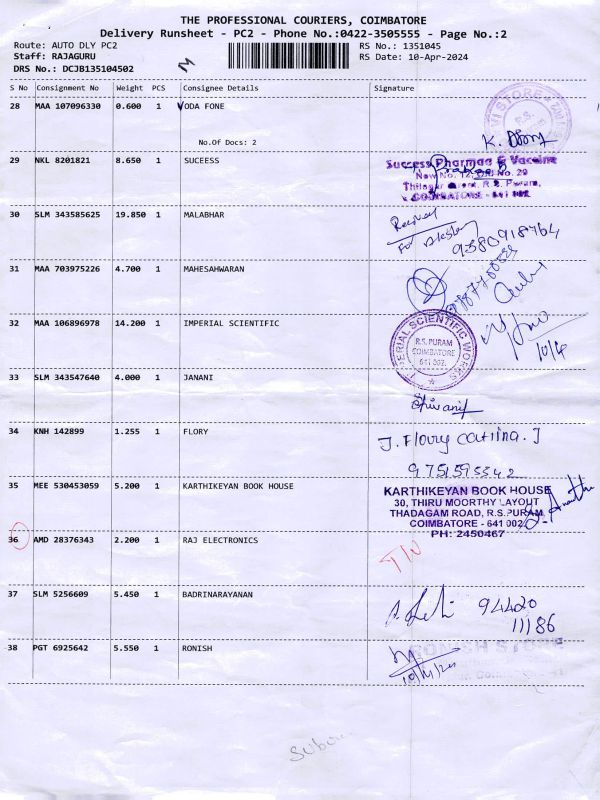 THE PROFESSIONAL COURIERS, COIMBATORE
Delivery Runsheet - PC2 - Phone No.:0422-3505555 - Page No.:2
Route: AUTO DLY PC2 RS No.: 1351045
Staff: RAJAGURU RS Date: 10-Apr-2024
DRS No.: DCJB135104502
S No Consignment No Weight PCS Consignee Details Signature
28 MAA 107096330 0.600 1 VODA FONE
No.Of Docs: 2
29 NKL 8201821 8.650 1 SUCEESS
Success Pharmac & Vaccine
New No. 12, Old No. 29
R.S. Puram,
COIMBATORE - 641 002.
30 SLM 343585625 19.850 1 MALABHAR
9380918764
31 MAA 703975226 4.700 1 MAHESAHWARAN
32 MAA 106896978 14.200 1 IMPERIAL SCIENTIFIC
IMPERIAL SCIENTIFIC WORKS
R.S. PURAM
COIMBATORE
641 002.
10/4
33 SLM 343547640 4.000 1 JANANI
34 KNH 142899 1.255 1 FLORY
J. Flory Catrina. J
9751595542
35 MEE 530453059 5.200 1 KARTHIKEYAN BOOK HOUSE
KARTHIKEYAN BOOK HOUSE
30, THIRU MOORTHY LAYOUT
THADAGAM ROAD, R.S.PURAM
COIMBATORE - 641 002
PH: 2450467
36 AMD 28376343 2.200 1 RAJ ELECTRONICS
37 SLM 5256609 5.450 1 BADRINARAYANAN
94420
11186
38 PGT 6925642 5.550 1 RONISH
RONISH STORE
10/4/24